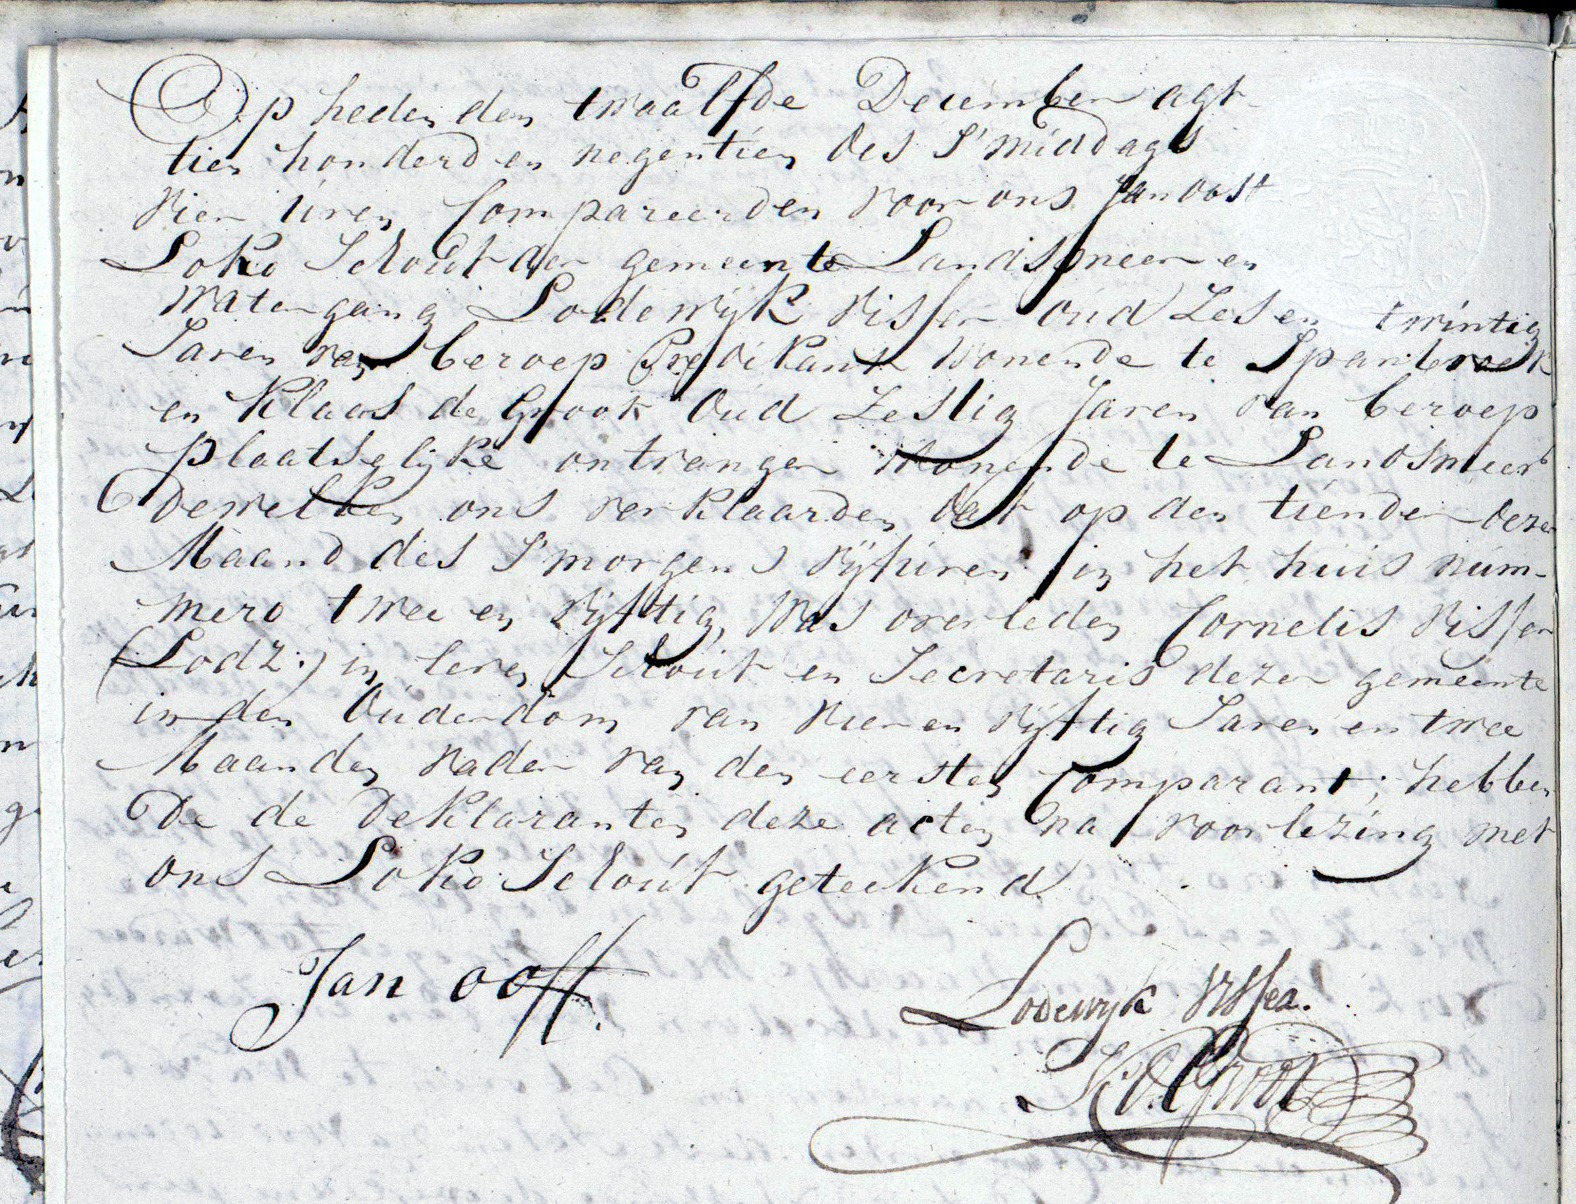 Op heden den twaalfde December agt
tien honderd en negentien des S'middags
vier uren Compareerden voor ons Jan oost
Loko Schout der gemeente Landsmeer en
Watergang Lodewijk Visser Oud Zes en twintig
Jaren van beroep Predikant wonende te Spanbroek
en Klaas de Groot Oud Zestig Jaren van beroep
plaatselijke ontvanger Wonende te Landsmeer
dewelken ons verklaarden dat op den tiende dezer
Maand des S'morgens vijf uren in het huis num-
mero twee en vijftig, Was overleden Cornelis Visser
(Lodz:) in leven Schout en Secretaris dezer gemeente
in den Ouderdom van vier en vijftig Jaren en twee
Maanden vader van den eersten Comparant; hebben
De de Deklaranten deze acten na voorlezing met
ons Loko Schout geteekend
Jan oost
Lodewyk Visser.
K. D. Groot